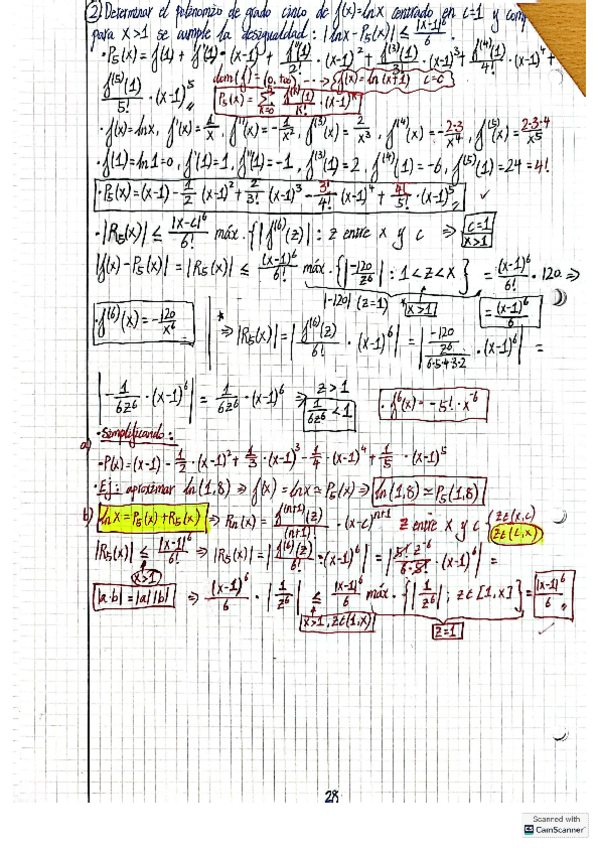 ② Determinar el polinomio de grado cinco de f(x)=lnx centrado en c=1 y
para x>1 se cumple la desigualdad: |lnx-P₅(x)| ≤ |x-1|⁶/6.
·P₅(x)=f(1)+f'(1)·(x-1)+f''(1)/2!·(x-1)²+f⁽³⁾(1)/3!·(x-1)³+f⁽⁴⁾(1)/4!·(x-1)⁴+
f⁽⁵⁾(1)/5!·(x-1)⁵
dom(f)=(0,+∞) ---> f(x)=ln(x+1) c=0
P₅(x)=Σ f⁽ᵏ⁾(1)/k!·(x-1)ᵏ
·f(x)=lnx, f'(x)=1/x, f''(x)=-1/x², f⁽³⁾(x)=2/x³, f⁽⁴⁾(x)=-2·3/x⁴, f⁽⁵⁾(x)=2·3·4/x⁵
·f(1)=ln1=0, f'(1)=1, f''(1)=-1, f⁽³⁾(1)=2, f⁽⁴⁾(1)=-6, f⁽⁵⁾(1)=24=4!
·P₅(x)=(x-1)-1/2(x-1)²+2/3!(x-1)³-3!/4!(x-1)⁴+4!/5!·(x-1)⁵
·|R₅(x)| ≤ |x-c|⁶/6! máx.{|f⁽⁶⁾(z)|: z entre x y c ⇒ c=1 x>1
|f(x)-P₅(x)|=|R₅(x)| ≤ (x-1)⁶/6! máx.{|-120/z⁶|: 1<z<x} = (x-1)⁶/6!·120 ⇒
|-120| (z=1) *x>1 =(x-1)⁶/6
·f⁽⁶⁾(x)=-120/x⁶ * ⇒|R₅(x)|=|f⁽⁶⁾(z)/6!·(x-1)⁶| = |-120/z⁶/6·5·4·3·2·(x-1)⁶| =
|-1/6z⁶·(x-1)⁶| = 1/6z⁶·(x-1)⁶ ⇒ z>1 1/6z⁶<1 ·f⁶(x)=-5!·x⁻⁶
·Simplificando:
a)
·P(x)=(x-1)-1/2·(x-1)²+1/3·(x-1)³-1/4·(x-1)⁴+1/5·(x-1)⁵
·Ej: aproximar ln(1,8) ⇒ f(x)=lnx≃P₅(x)⇒ ln(1,8)≃P₅(1,8)
b) lnx=P₅(x)+R₅(x) ⇒ Rn(x)=f⁽ⁿ⁺¹⁾(z)/(n+1)!·(x-c)ⁿ⁺¹ z entre x y c (z∈(x,c) z∈(c,x)
|R₅(x)| ≤ |x-1|⁶/6 ⇒|R₅(x)|=|f⁽⁶⁾(z)/6!·(x-1)⁶| = |5!·z⁻⁶/6·5!·(x-1)⁶| =
(x>1)
|a·b|=|a||b| ⇒ (x-1)⁶/6·|1/z⁶| ≤ |x-1|⁶/6 máx.{|1/z⁶|; z∈[1,x]} = |x-1|⁶/6
x>1, z∈(1,x)
z=1
28
Scanned with
CS CamScanner